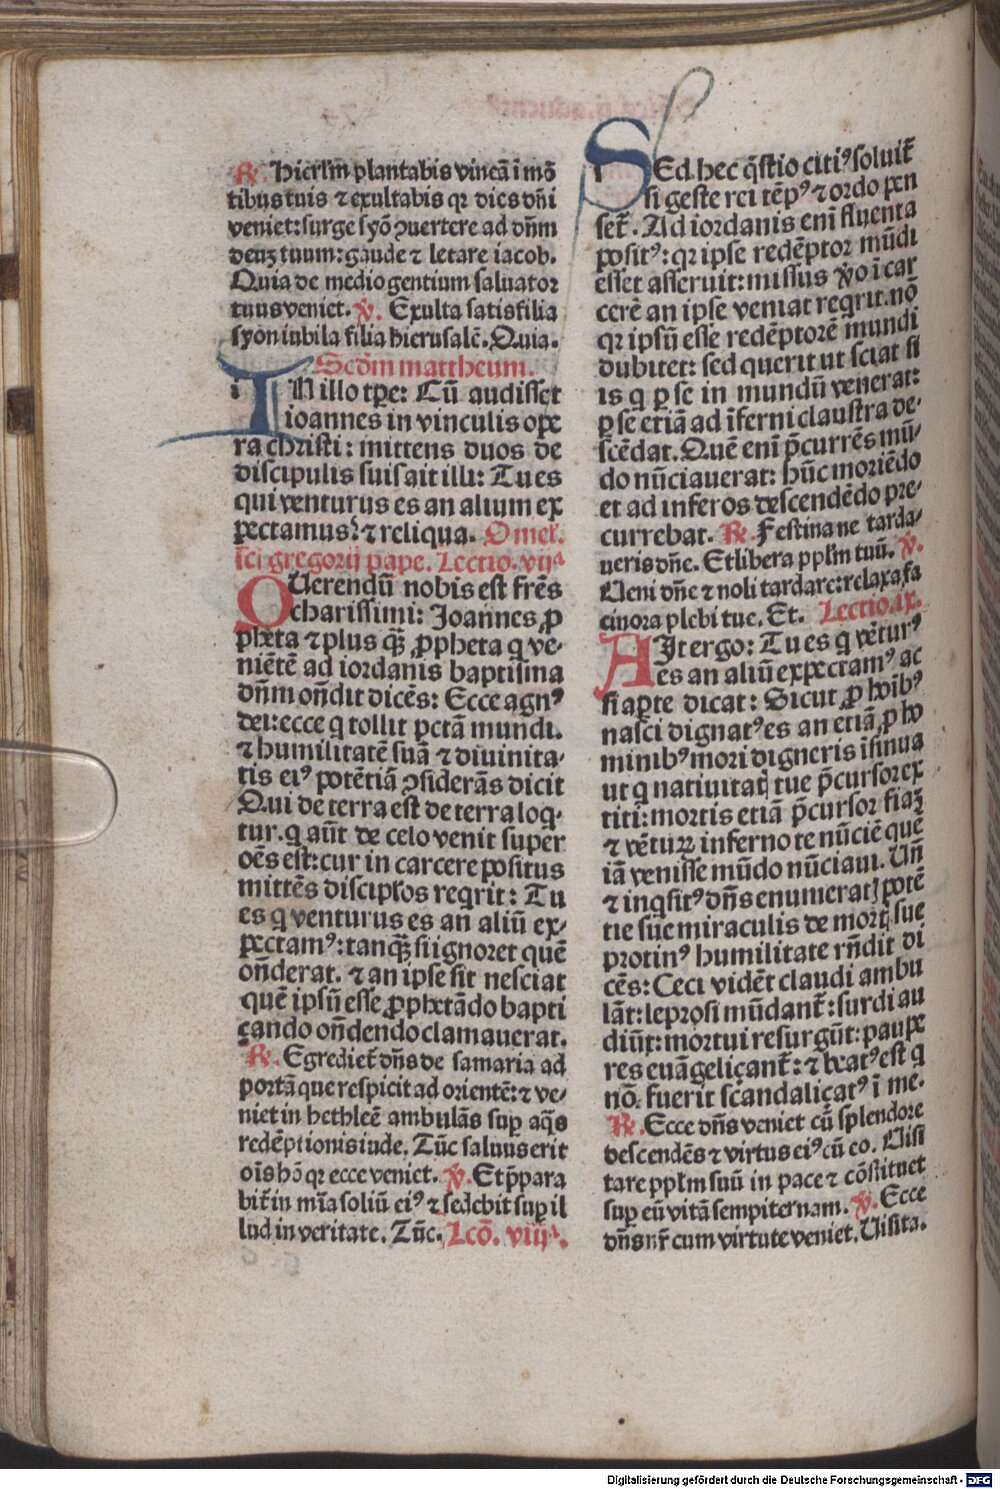 ℟. Hierl'm plantabis vineā ī mō
tibus tuis ⁊ exultabis qꝛ dies dn̄i
veniet: surge syō ꝯuertere ad dn̄m
deuꝫ tuum: gaude ⁊ letare iacob.
Quia de medio gentium saluator
tuus veniet. ℣. Exulta satis filia
syon iubila filia hierusalē. Quia.
Scd̄m mattheum.
IN illo tꝑe: Cū audisset
ioannes in vinculis ope
ra christi: mittens duos de
discipulis suis ait illi: Tu es
qui venturus es an alium ex
pectamus? ⁊ reliqua. Omel.
sc̄i gregorij pape. Lectio. vijᵃ
QUerendū nobis est frēs
charissimi: Joannes ꝓ
pheta ⁊ plus qꝫ̄ ꝓpheta q ve-
niētē ad iordanis baptisma
dn̄m on̄dit dicēs: Ecce agnꝰ
dei: ecce q tollit pctā mundi.
⁊ humilitatē suā ⁊ diuinita-
tis eiꝰ potētiā ꝯsiderās dicit
Qui de terra est de terra loq-
tur. q aūt de celo venit super
oēs est: cur in carcere positus
mittēs discipl'os reqrit: Tu
es q venturus es an aliū ex-
pectamꝰ: tanqꝫ̄ si ignoret quē
on̄derat. ⁊ an ipse sit nesciat
quē ipsū esse ꝓphetādo bapti
çando on̄dendo clamauerat.
℟. Egrediet̄ dn̄s de samaria ad
portā que respicit ad orientē: ⁊ ve-
niet in bethleē ambulās suꝑ aq̄s
redēptionis iude. Tūc saluus erit
oīs hō qꝛ ecce veniet. ℣. Et p̄para
bit̄ in mīa soliū eiꝰ ⁊ sedebit suꝑ il
lud in veritate. Tūc. Lcō. viijᵃ.
SEd hec q̄stio citiꝰ soluit̄
si geste rei tēpꝰ ⁊ ordo pen
set̄. Ad iordanis enī fluenta
positꝰ: qꝛ ipse redēptor mūdi
esset asseruit: missus ꝟo ī car
cerē an ipse veniat reqrit. nō
qꝛ ipsū esse redēptorē mundi
dubitet: sed querit ut sciat si
is q ꝑ se in mundū venerat:
ꝑ se etiā ad īferni claustra de-
scēdat. Quē enī p̄currēs mū-
do nūciauerat: hūc moriēdo
et ad inferos descendēdo pre-
currebat. ℟. Festina ne tarda-
ueris dn̄e. Et libera ppl'm tuū. ℣.
Ueni dn̄e ⁊ noli tardare: relaxa fa
cinora plebi tue. Et. Lectio. ix.
AJt ergo: Tu es q vētur̄ꝰ
es an aliū expectamꝰ ac
si aꝑte dicat: Sicut ꝓ hoībꝰ
nasci dignatꝰ es an etiā ꝓ ho
minibꝰ mori digneris īsinua
ut q natiuitatꝭ tue p̄cursor ex
titi: mortis etiā p̄cursor fiaꝫ
⁊ vēturꝫ inferno te nūciē quē
iā venisse mūdo nūciaui. Un̄
⁊ inqsitꝰ dn̄s enumeratꝭ potē
tie sue miraculis de mortꝭ sue
protinꝰ humilitate rn̄dit di
cēs: Ceci vidēt claudi ambu
lāt: leprosi mūdant̄: surdi au
diūt: mortui resurgūt: pauꝑe
res euāgeliçant̄: ⁊ beatꝰ est q
nō fuerit scandaliçatꝰ ī me.
℟. Ecce dn̄s veniet cū splendore
descendēs ⁊ virtus eiꝰ cū eo. Uisi
tare ppl'm suū in pace ⁊ cōstituet
suꝑ eū vitā sempiternam. ℣. Ecce
dn̄s nr̄ cum virtute veniet. Uisita.
Digitalisierung gefördert durch die Deutsche Forschungsgemeinschaft - DFG